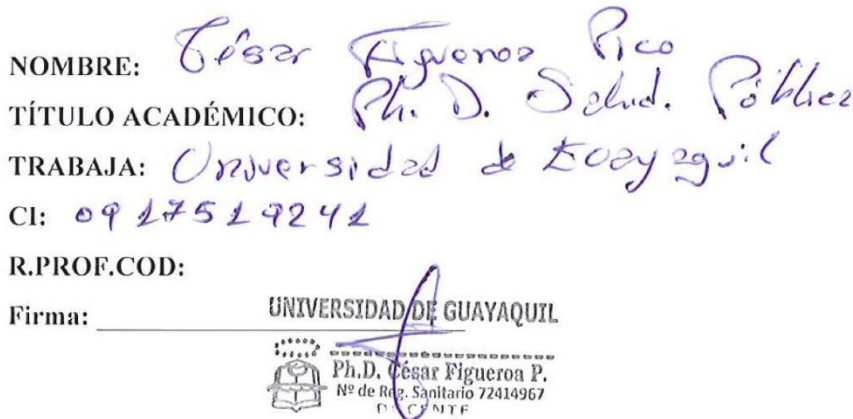 NOMBRE: César Figueroa Pico
TÍTULO ACADÉMICO: Ph. D. Salud. Pública
TRABAJA: Universidad de Guayaquil
CI: 0917519241
R.PROF.COD:
Firma:
UNIVERSIDAD DE GUAYAQUIL
Ph.D. César Figueroa P.
Nº de Reg. Sanitario 72414967
DOCENTE